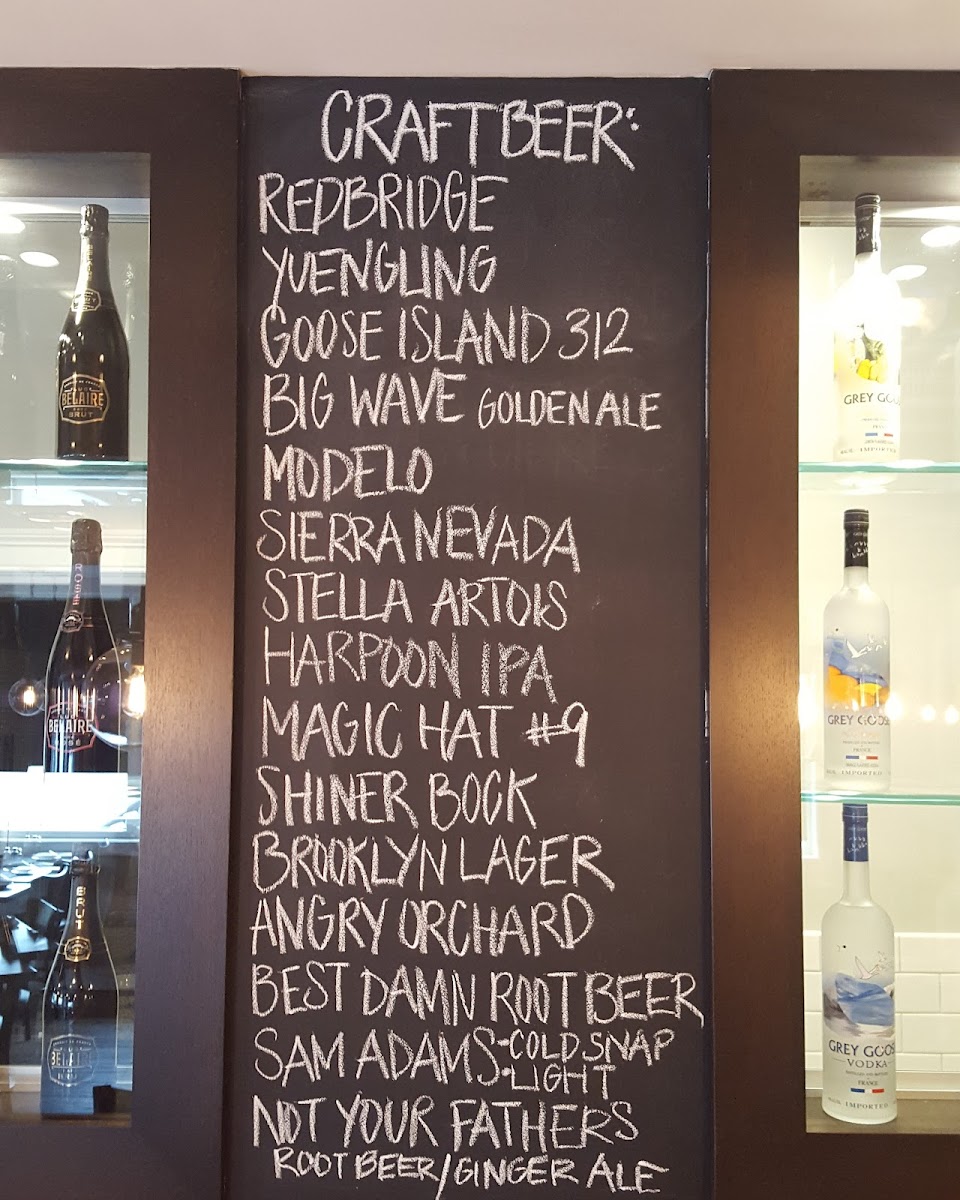 CRAFT BEER:
REDBRIDGE
YUENGLING
GOOSE ISLAND 312
BIG WAVE GOLDEN ALE
MODELO
SIERRA NEVADA
STELLA ARTOIS
HARPOON IPA
MAGIC HAT #9
SHINER BOCK
BROOKLYN LAGER
ANGRY ORCHARD
BEST DAMN ROOT BEER
SAM ADAMS -COLD SNAP
-LIGHT
NOT YOUR FATHERS
ROOT BEER/GINGER ALE
BELAIRE
BRUT
ROSÉ
BELAIRE
BRUT
BELAIRE
GREY GOOSE
IMPORTED
GREY GOOSE
FRANCE
IMPORTED
GREY GOOSE
VODKA
FRANCE
IMPORTED